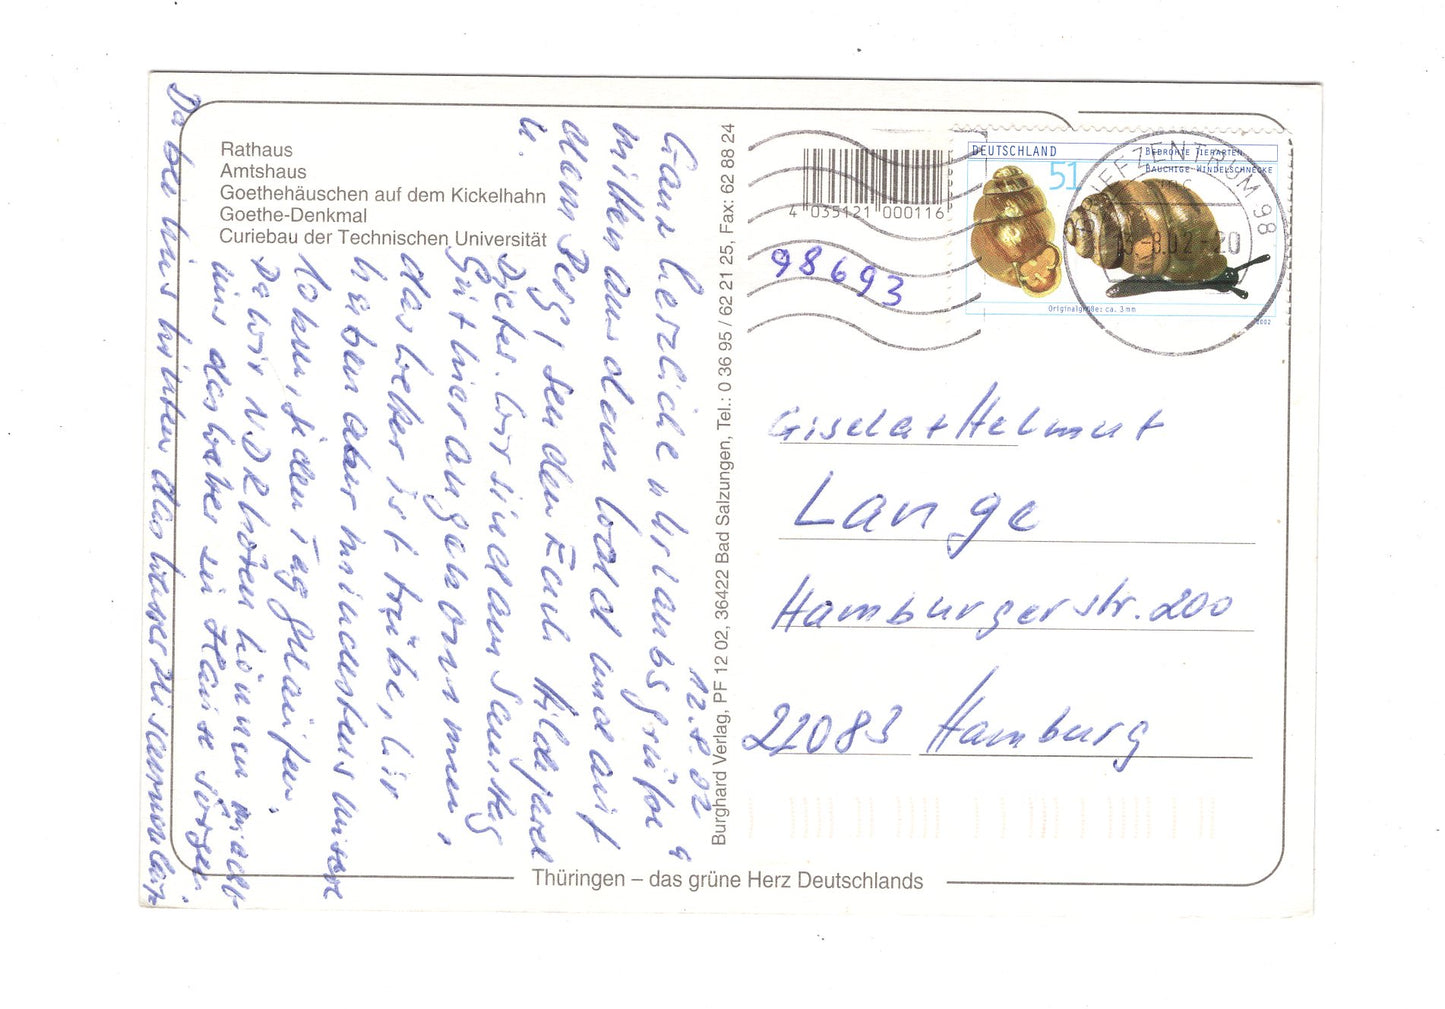 Rathaus
Amtshaus
Goethehäuschen auf dem Kickelhahn
Goethe-Denkmal
Curiebau der Technischen Universität
12.8.02
Ganz herzliche Urlaubsgrüße
mitten aus dem Wald und auf
dem Berg, senden Euch Hildegard
u. Dieter. Wir sind am Samstag
Gut hier angekommen,
das Wetter ist trübe, Wir
haben aber mindestens unsere
10 km, si den Tag gelaufen.
Da wir NDR hören können
uns das Wetter zu Hause Sorgen.
Da bei uns hinter das Wasser
Burghard Verlag, PF 12 02, 36422 Bad Salzungen, Tel.: 0 36 95 / 62 21 25, Fax: 62 88 24
4 035121 000116
98693
DEUTSCHLAND
51
BEDROHTE TIERARTEN
BAUCHIGE WINDELSCHNECKE
Originalgröße: ca. 3 mm
2002
BRIEFZENTRUM 98
13.-8.02-20
Gisela + Helmut
Lange
Hamburger str. 200
22083 Hamburg
Thüringen – das grüne Herz Deutschlands